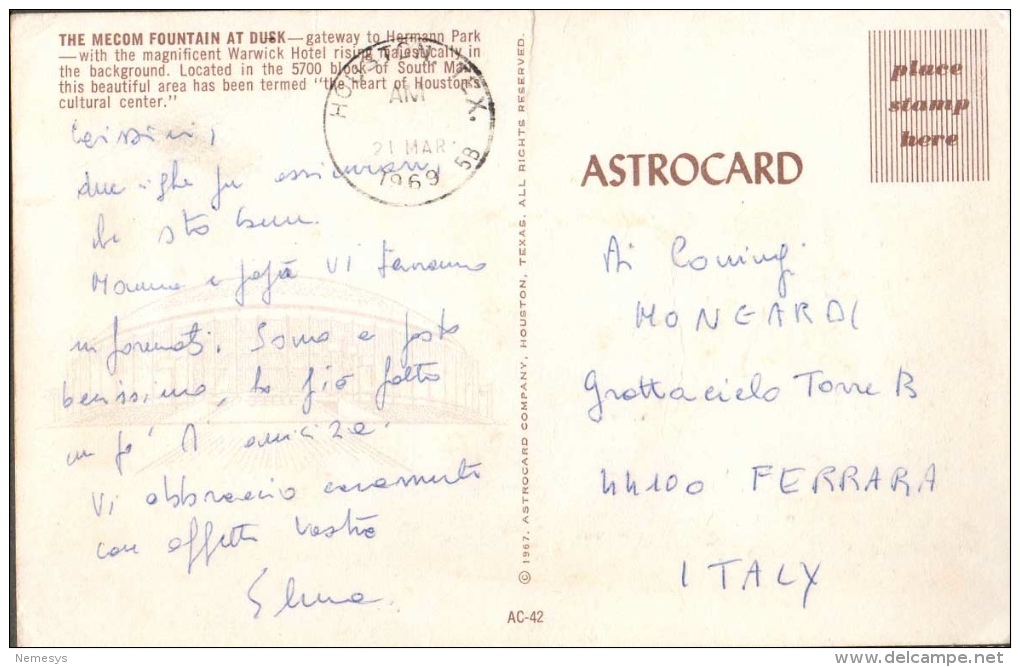 THE MECOM FOUNTAIN AT DUSK—gateway to Hermann Park
—with the magnificent Warwick Hotel rising majestically in
the background. Located in the 5700 block of South Main
this beautiful area has been termed "the heart of Houston's
cultural center."
HOUSTON, TEX.
AM
21 MAR
1969
5B
Carissimi,
due righe per assicurarvi
che sto bene.
Mamma e papà vi terranno
informati. Sono a posto
benissimo, ho già fatto
un po' d'amicizia.
Vi abbraccio caramente
con affetto vostra
© 1967, ASTROCARD COMPANY, HOUSTON, TEXAS. ALL RIGHTS RESERVED.
AC-42
place
stamp
here
ASTROCARD
Ai Coniugi
MONGARDI
Grattacielo Torre B
44100 FERRARA
ITALY
Nemesys
delcampe.net